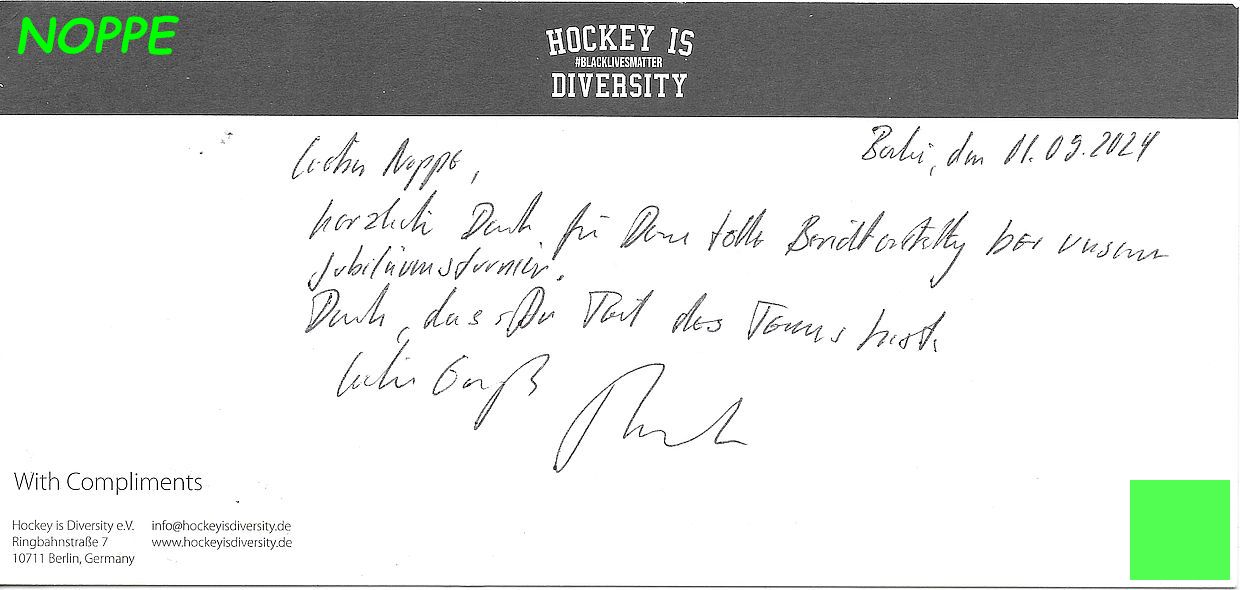 NOPPE
HOCKEY IS
#BLACKLIVESMATTER
DIVERSITY
Berlin, den 01.09.2024
Lieber Noppe,
herzlich Dank für Deine tolle Berichterstattung bei unserem
Jubiläumsturnier.
Dank, dass Du Teil des Teams bist.
Liebe Grüße
With Compliments
Hockey is Diversity e.V. info@hockeyisdiversity.de
Ringbahnstraße 7 www.hockeyisdiversity.de
10711 Berlin, Germany